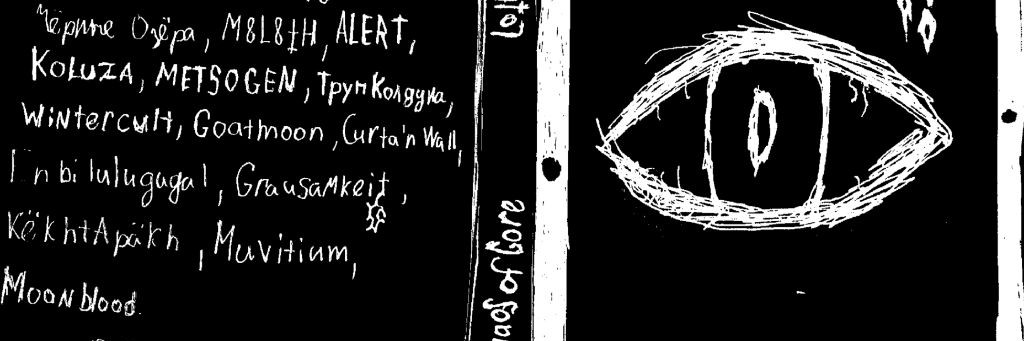 Чёрные Озёра, M8L8‡H, ALERT,
KOLUZA, METSOGEN, Труп Колдуна,
Wintercult, Goatmoon, Curta'n Wall,
Enbilulugugal, Grausamkeit,
KëkhtArakh, Muvitium,
Moonblood.
of Gore